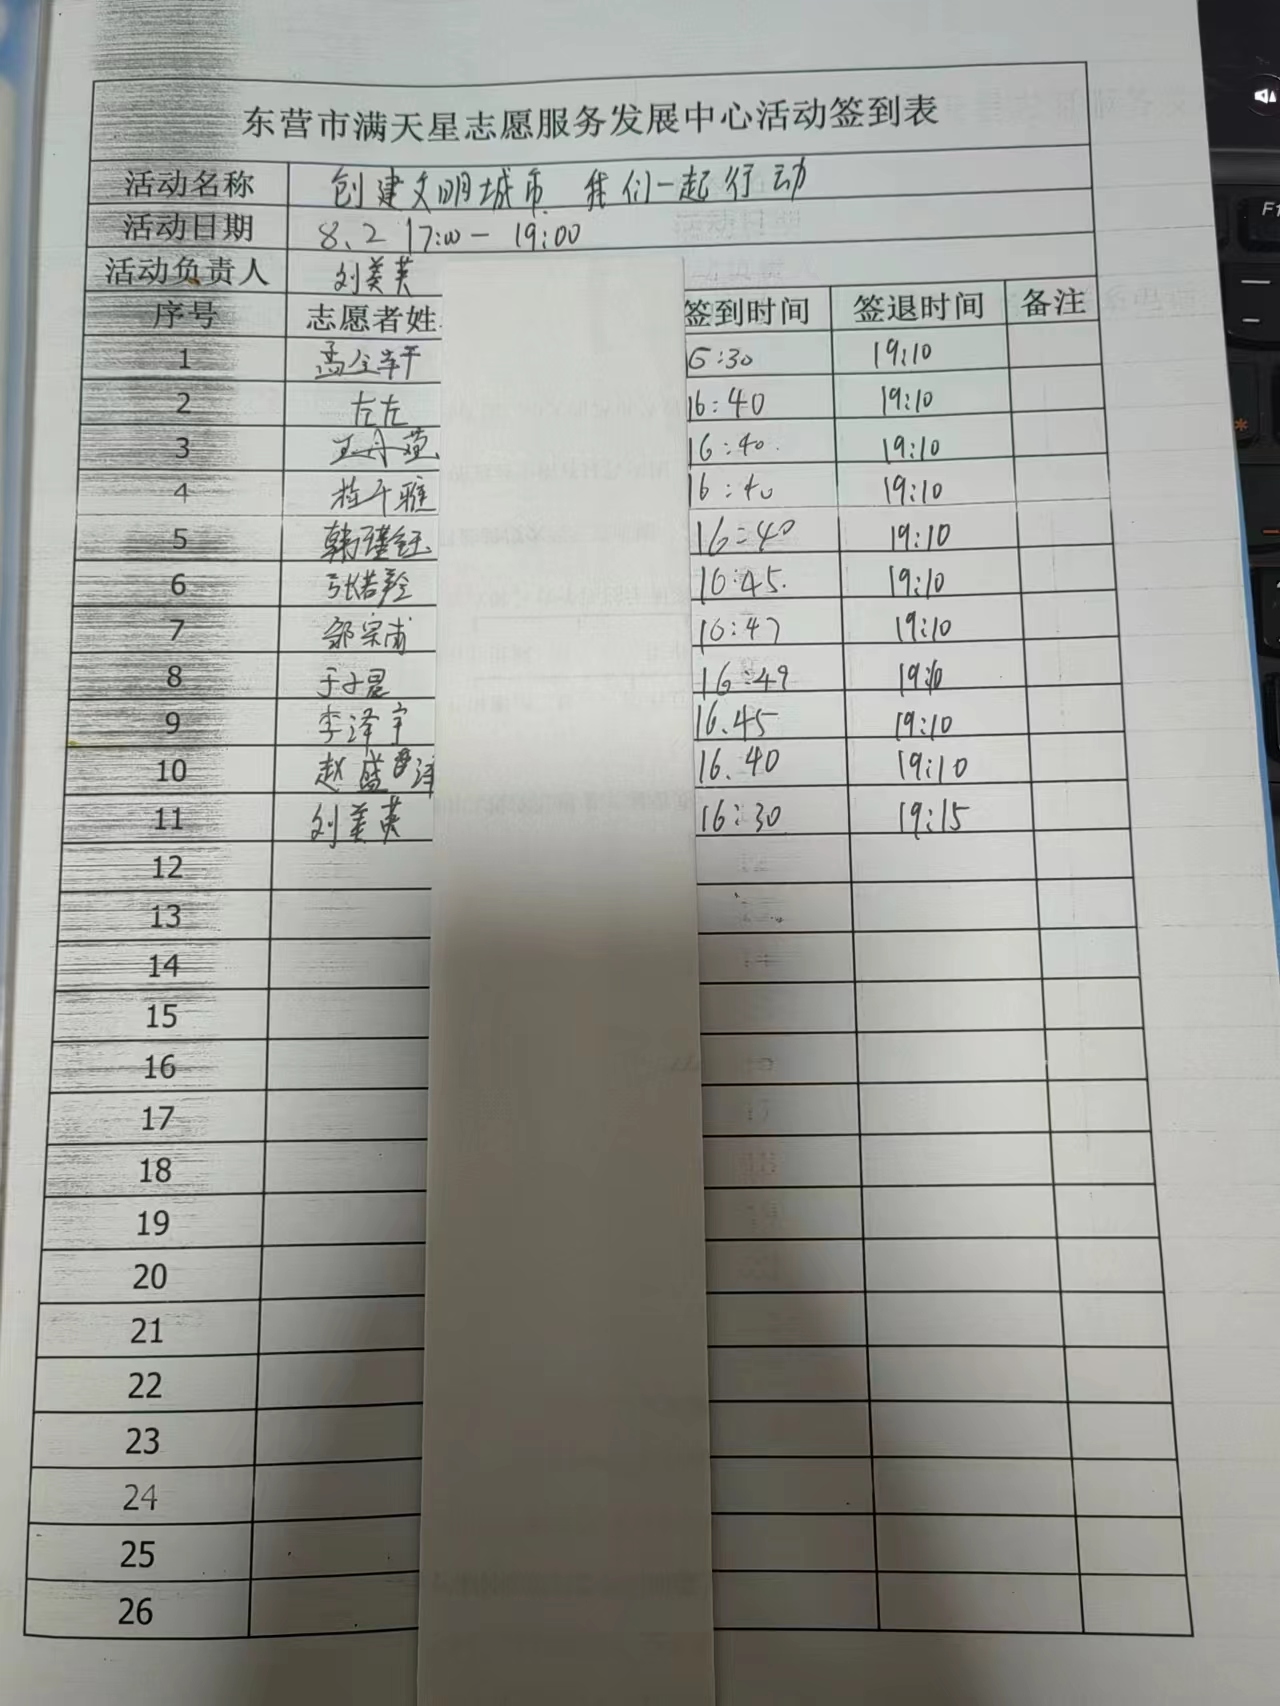 东营市满天星志愿服务发展中心活动签到表
活动名称 创建文明城市 我们一起行动
活动日期 8.2 17:00 — 19:00
活动负责人 刘美英
序号 志愿者姓 签到时间 签退时间 备注
1 6:30 19:10
2 左左 16:40 19:10
3 王丹 16:40. 19:10
4 桂千雅 16:40 19:10
5 韩瑾钰 16:40 19:10
6 张若 16:45. 19:10
7 邹宗甫 16:47 19:10
8 于子晨 16:49 19:10
9 李泽宇 16.45 19:10
10 赵盛泽 16.40 19:10
11 刘美英 16:30 19:15
12
13
14
15
16
17
18
19
20
21
22
23
24
25
26